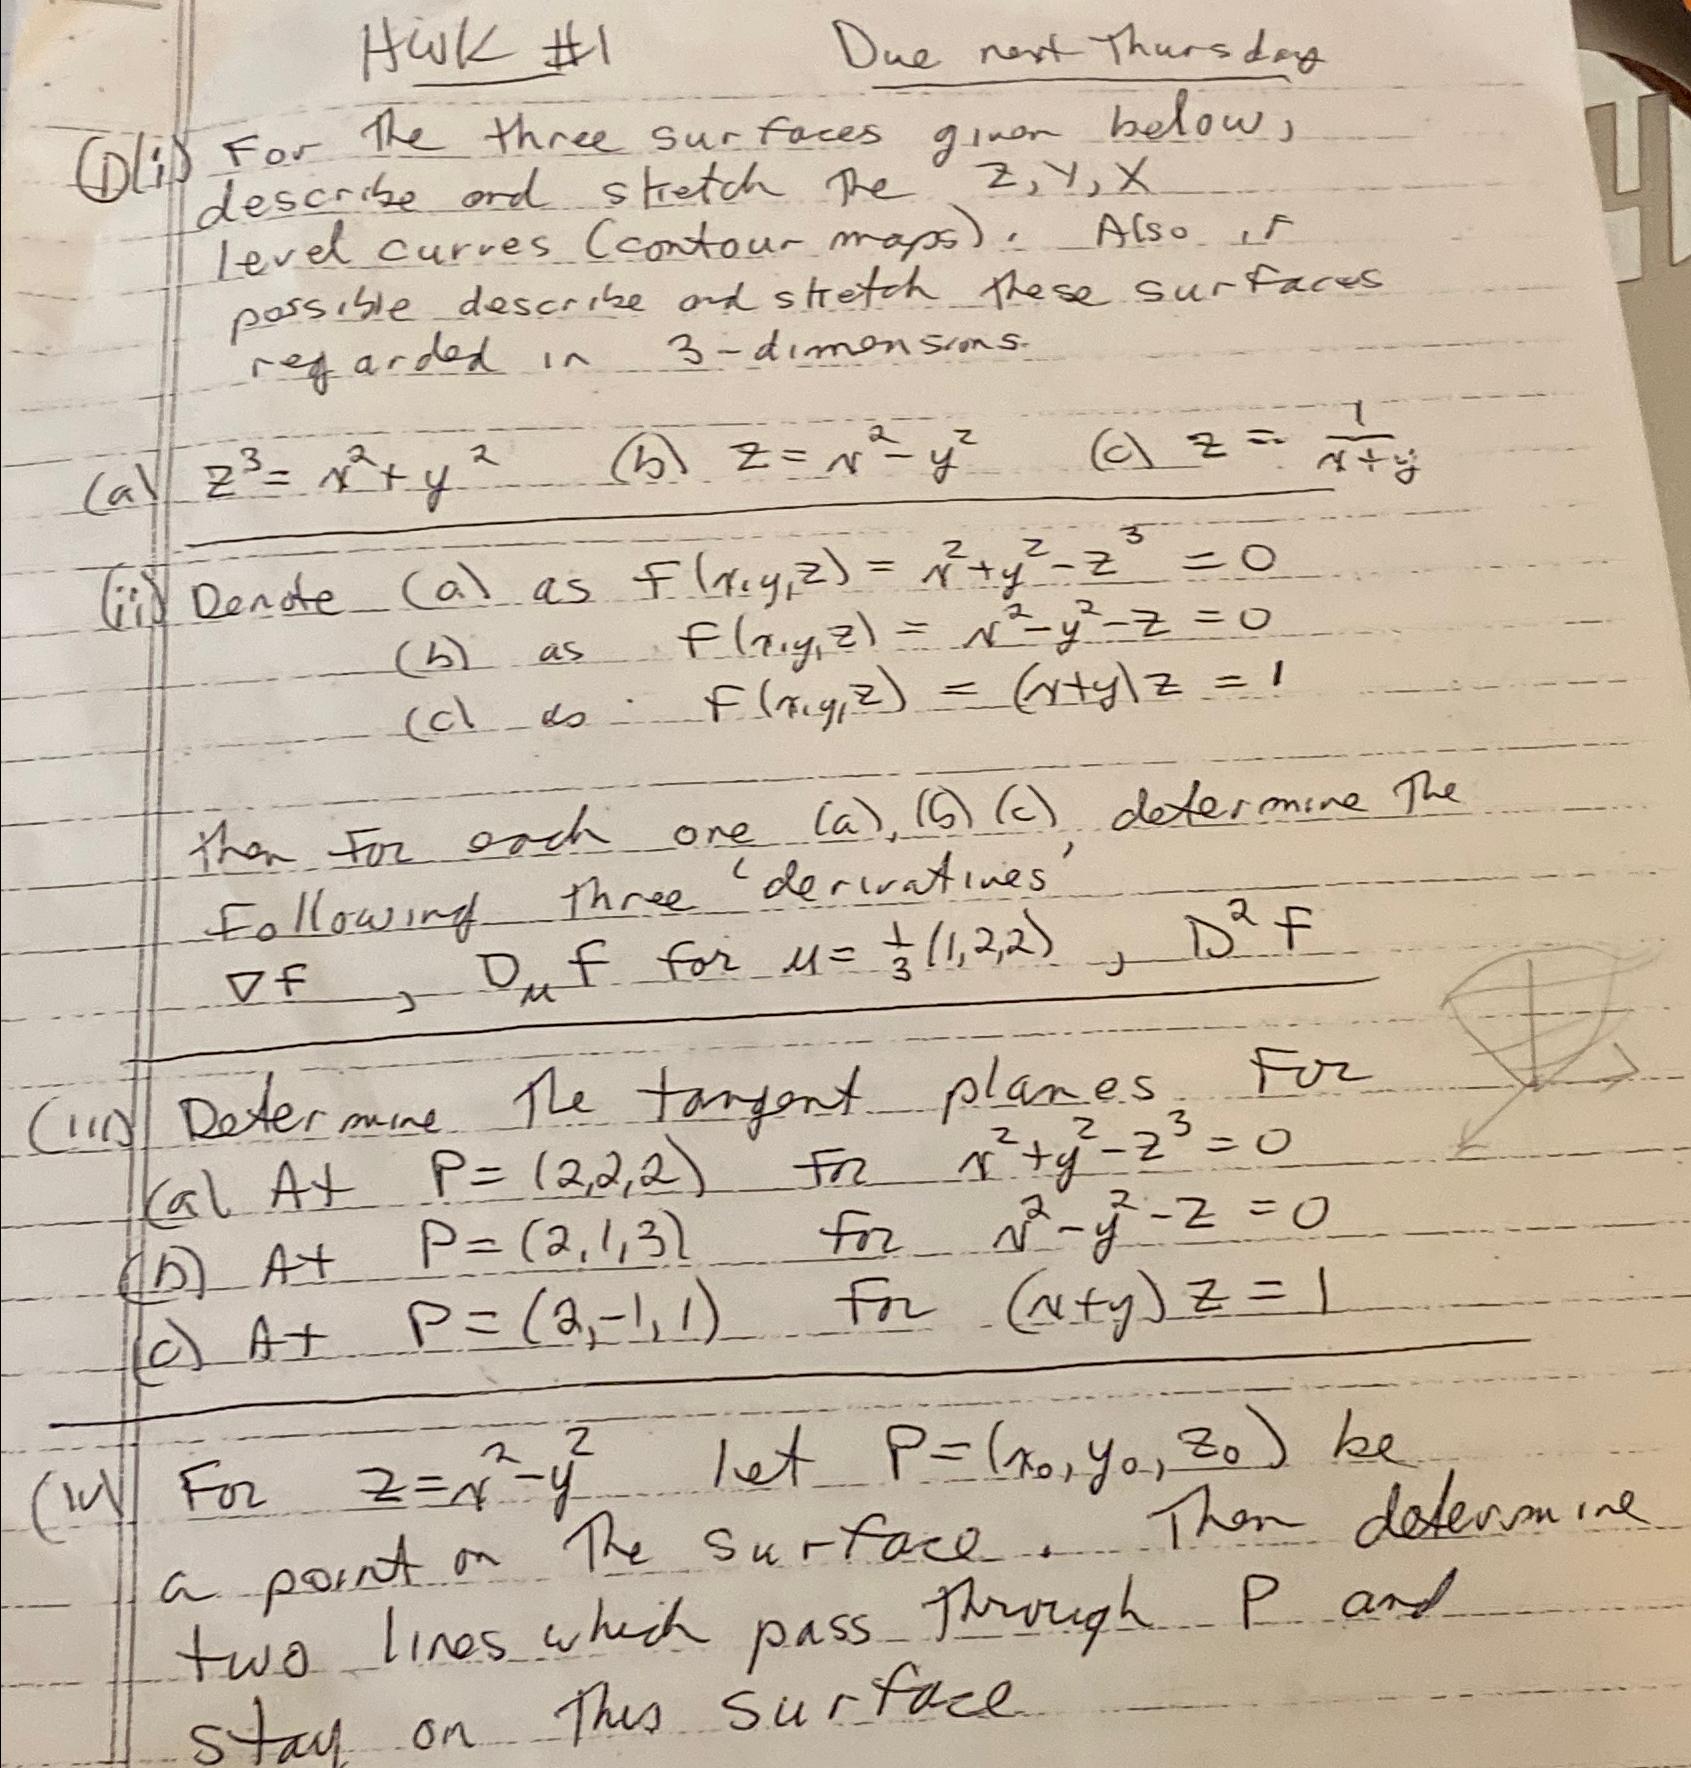 HWK #1 Due next Thursday
(1)(i) For the three surfaces given below,
describe and sketch the Z, Y, X
level curves (contour maps). Also if
possible describe and sketch these surfaces
regarded in 3-dimensions.
(a) z³ = x² + y² (b) z = x² - y² (c) z = 1/(x+y)
(ii) Denote (a) as F(x,y,z) = x² + y² - z³ = 0
(b) as F(x,y,z) = x² - y² - z = 0
(c) as F(x,y,z) = (x+y)z = 1
then for each one (a), (b) (c), determine the
following three 'derivatives'
∇F , D_u F for u = 1/3 (1,2,2) , D² F
(iii) Determine the tangent planes for
(a) At P = (2,2,2) for x² + y² - z³ = 0
(b) At P = (2,1,3) for x² - y² - z = 0
(c) At P = (2,-1,1) for (x+y) z = 1
(iv) For z = x² - y² let P = (x₀, y₀, z₀) be
a point on the surface. Then determine
two lines which pass through P and
stay on this surface